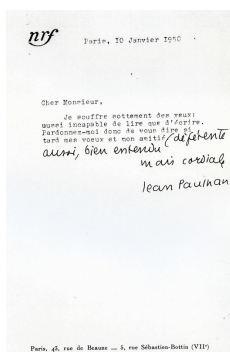 nrf
Paris, 10 Janvier 1950
Cher Monsieur,
Je souffre sottement des yeux:
aussi incapable de lire que d'écrire.
Pardonnez-moi donc de vous dire si
tard mes voeux et mon amitié (déférente
aussi, bien entendu
mais cordiale
Jean Paulhan
Paris, 43, rue de Beaune — 5, rue Sébastien-Bottin (VIIe)